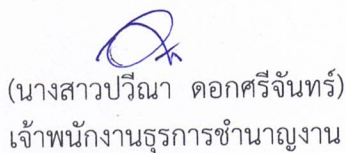 (นางสาวปวีณา ดอกศรีจันทร์)
เจ้าพนักงานธุรการชำนาญงาน